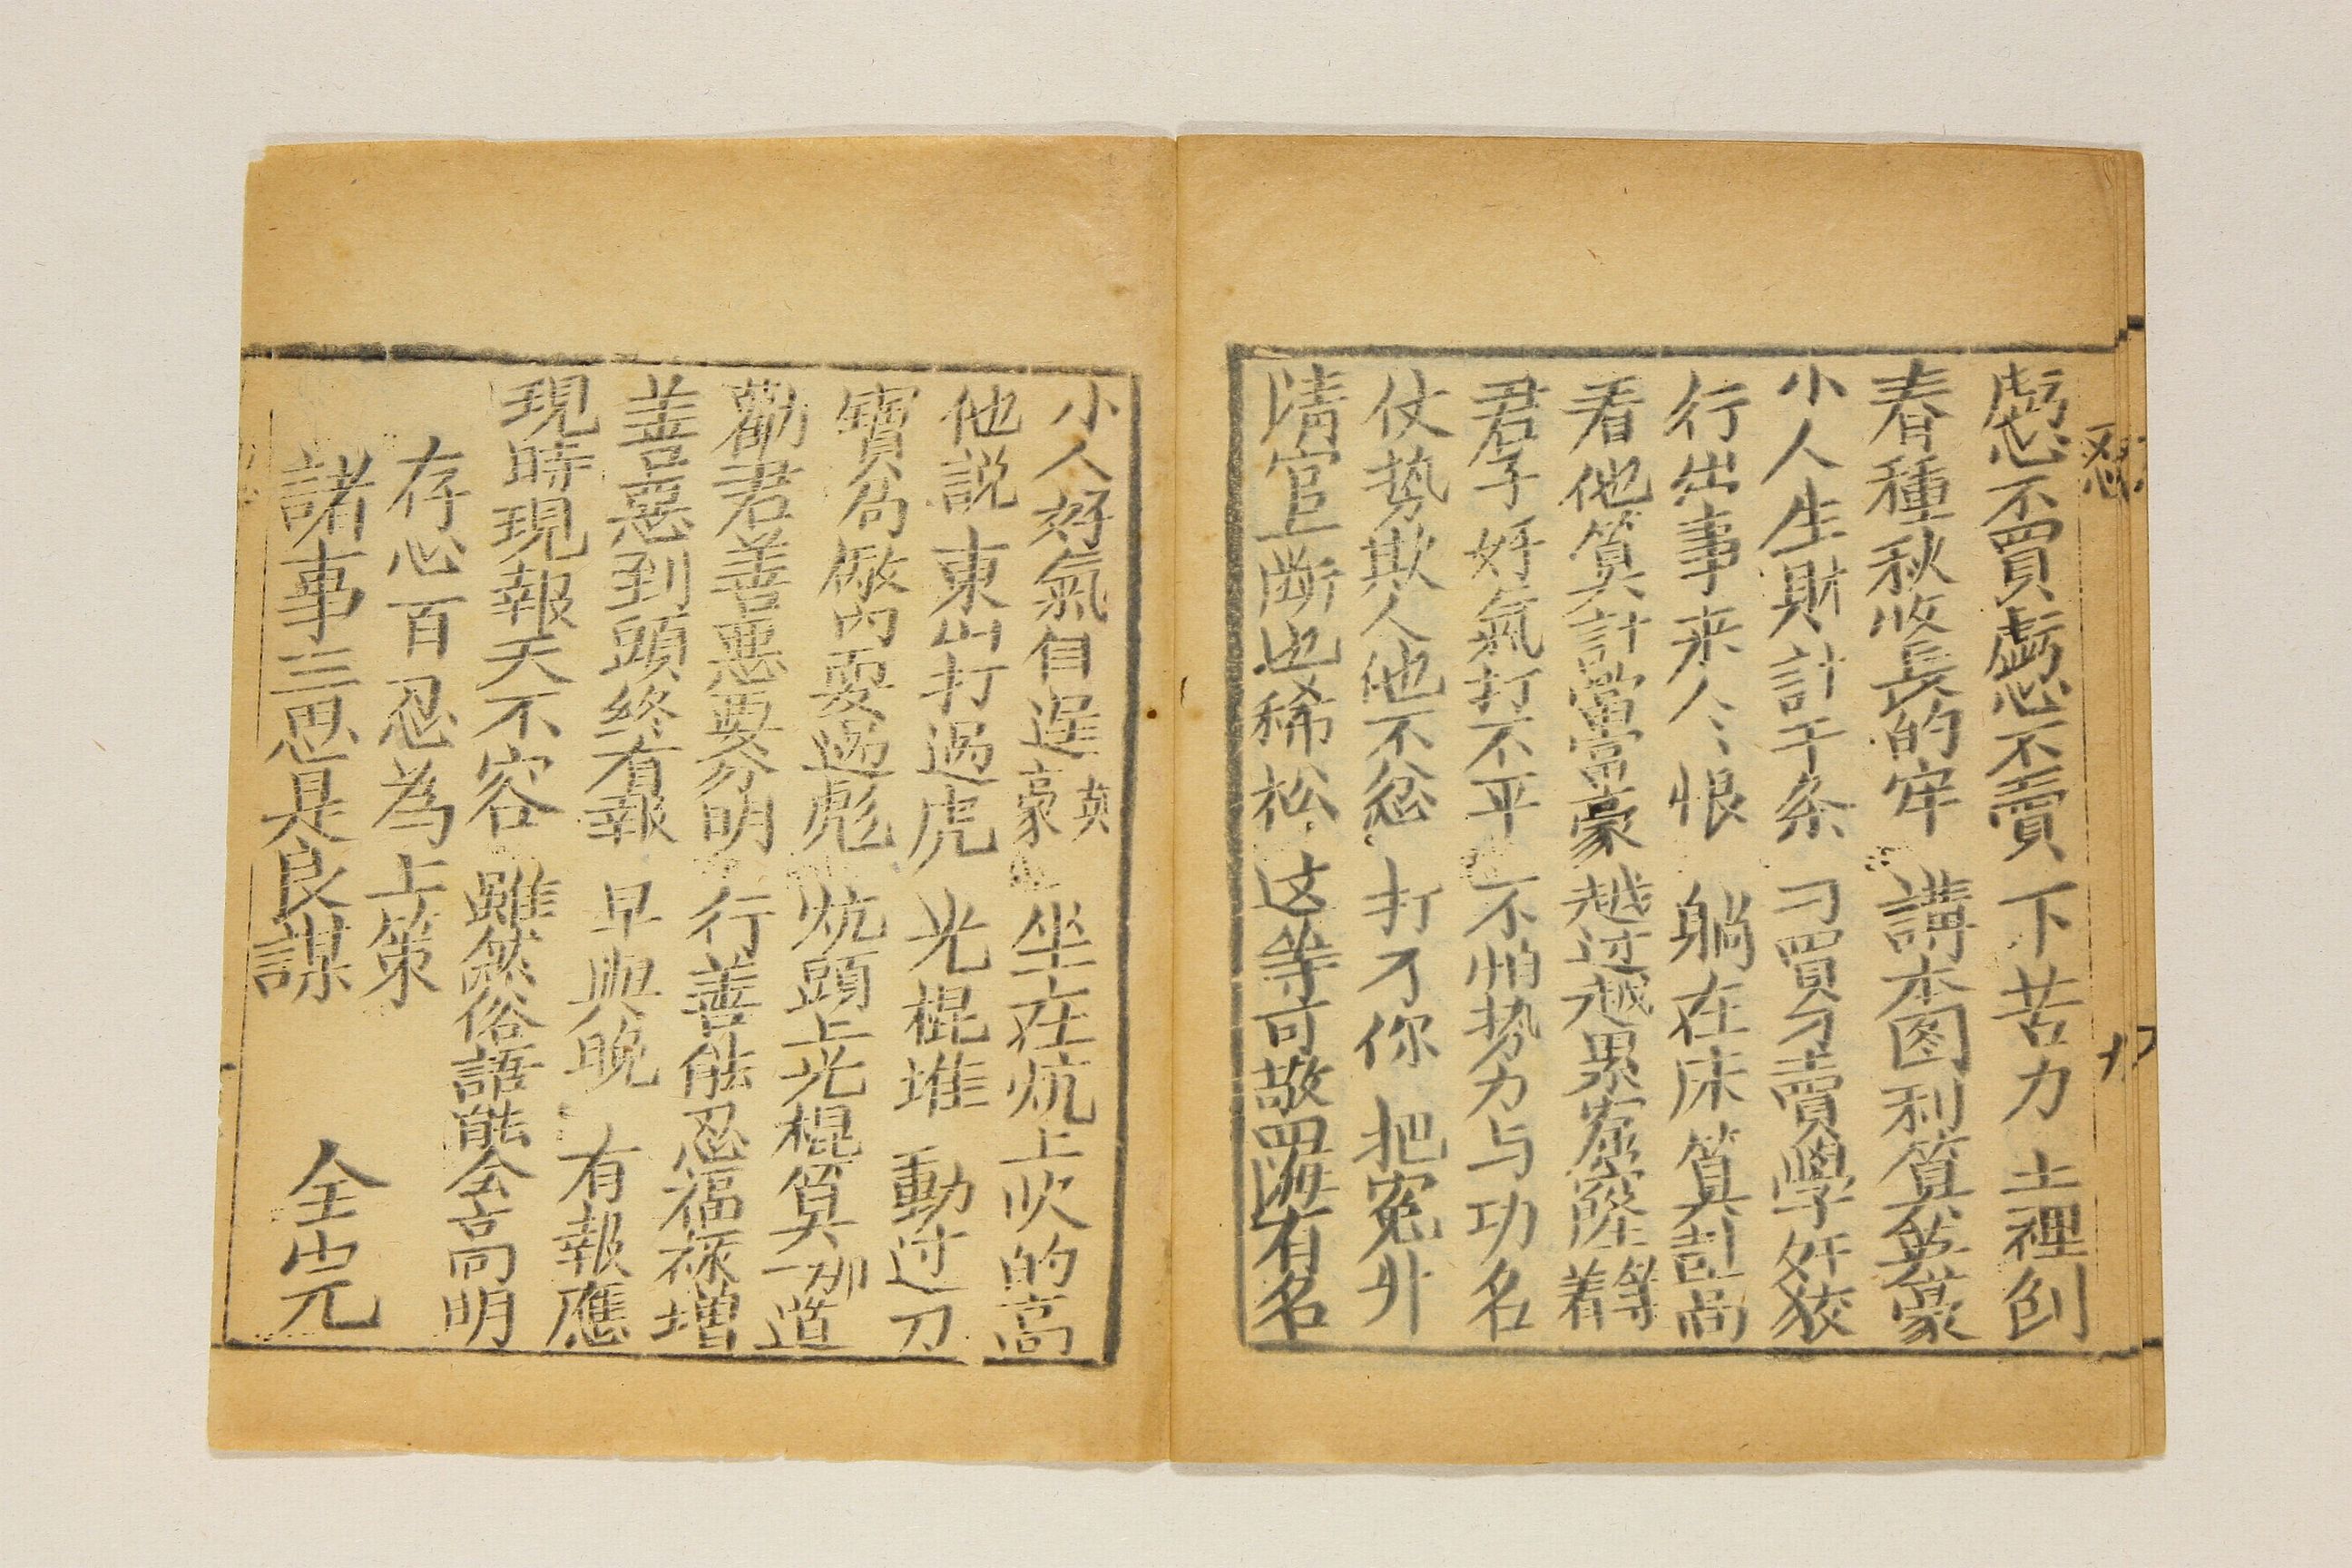 忍
九
虧心不買虧心不賣 下苦力 土裡刨
春種秋收長的牢 講本图利算英豪
小人生財計千条 刁買刁賣學奸狡
行出事来人〻恨 躺在床 算計尚
看他算計當富豪 越过越累窟窿着等
君子好氣打不平 不怕势力与功名
仗势欺人他不忿 打刁你 把冤升
晴官断也稀松 这等可敬四海有名
小人好氣自逞英豪 坐在炕上吹的高
他説東山打過虎 光棍堆 動过刀
寶局廠內耍過彪 炕頭上光棍算那一道
勸君善惡要分明 行善能忍福祿增
善惡到頭終有報 早與晚 有報應
現時現報天不容 雖然俗語能全高明
存心百忍為上策
諸事三思是良謀 全完